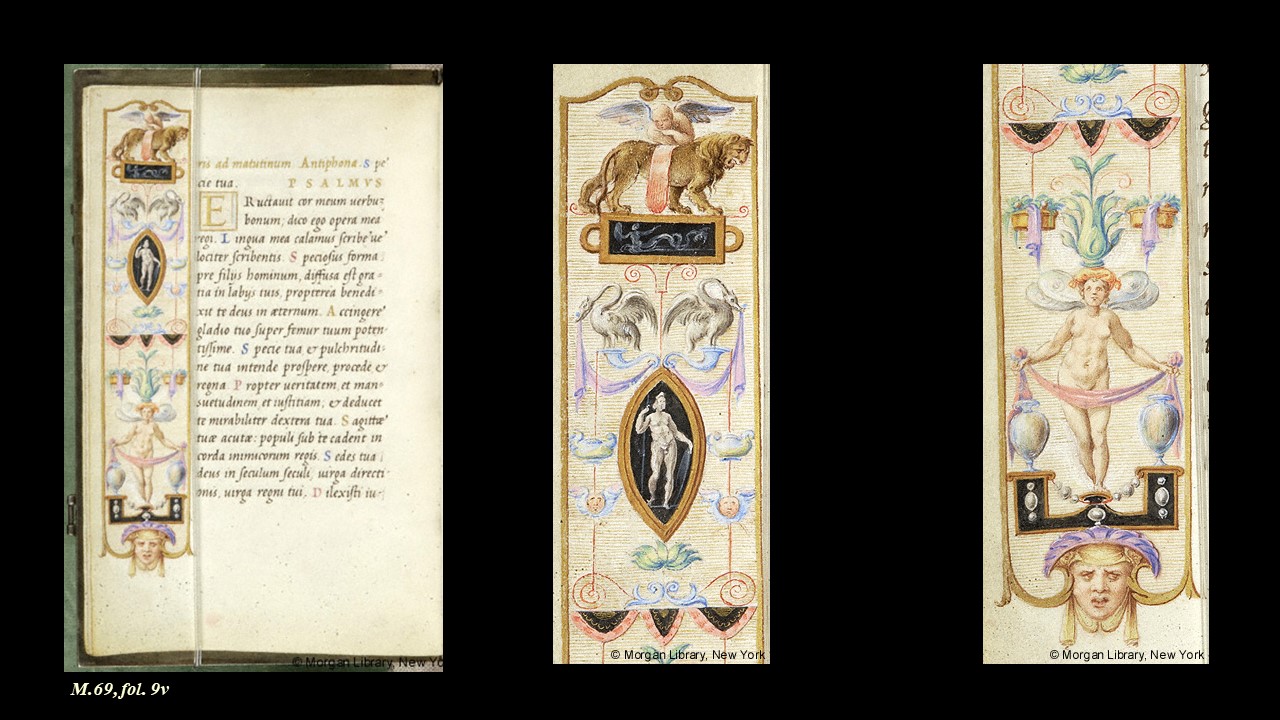 ris ad matutinum Antiphona. S pe'
cie tua. P S A L M V S
E Ructauit cor meum uerbu
bonum; dico ego opera mea
regi. L ingua mea calamus scribe ue'
lociter scribentis. S peciosus forma
pre filijs hominum, diffusa est gra
tia in labijs tuis, propterea benedi
xit te deus in æternum. A ccingere'
gladio tuo super femur tuum poten
tissime. S pecie tua, & pulchritudi
ne tua intende prospere, procede &
regna. P ropter ueritatem, et man
suetudinem, et iustitiam; & deducet
te mirabiliter dextera tua. S agittæ'
tuæ acutæ: populi sub te cadent in
corda inimicorum regis. S edes tua
deus in seculum seculi, uirga directi
onis, uirga regni tui. D ilexisti iu
© Morgan Library, New Yo
© Morgan Library, New York
© Morgan Library, New York
M.69, fol. 9v